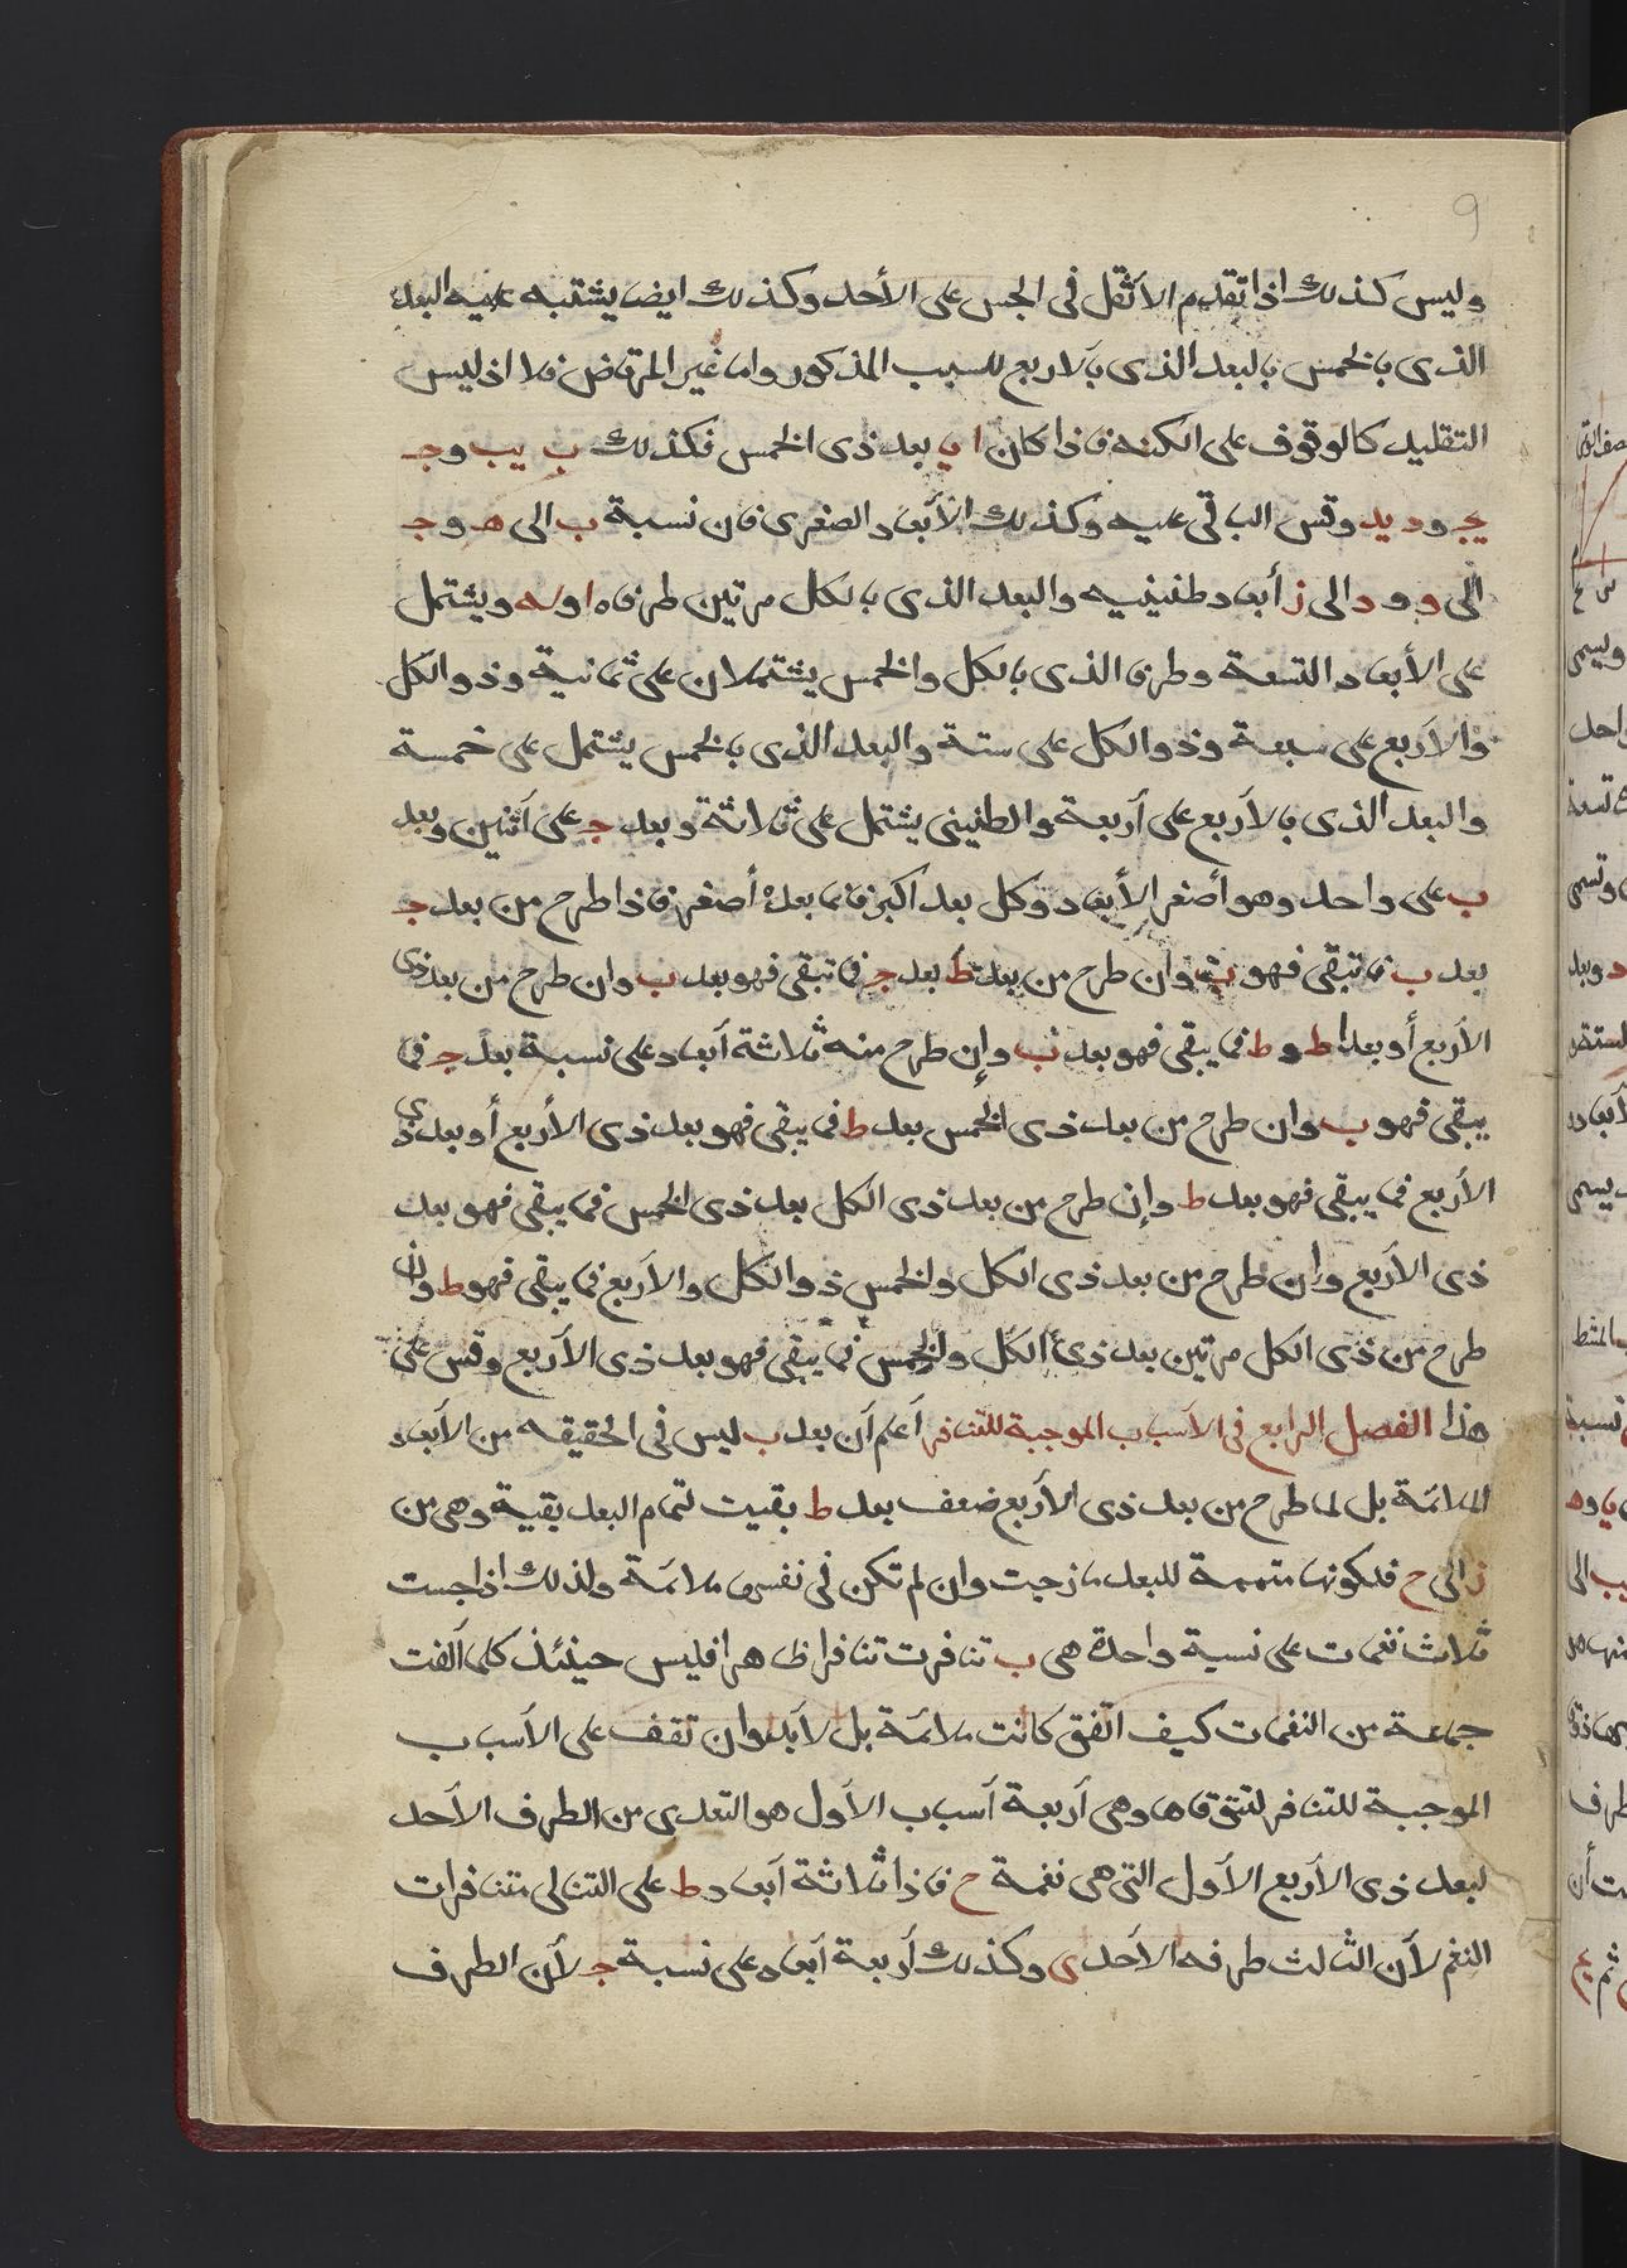 9
وليس كذلك اذا تقدم الاثقل فى الجس على الأحد وكذلك ايضا يشتبه عليه البعد
الذى بالخمس بالبعد الذى بالاربع للسبب المذكور واما غير المرتاض فلا اذ ليس
التقليد كالوقوف على الكنه فاذا كان ا يا بعد ذى الخمس فكذلك ب يب وجـ
يج ود يد وقس الباقى عليه وكذلك الأبعاد الصغرى فان نسبة ب الى هـ وجـ
الى و ود الى ز أبعاد طنينيه والبعد الذى بالكل مرتين طرفاه ا وله ويشتمل
على الأبعاد التسعة وطرفا الذى بالكل والخمس يشتملان على ثمانية وذو الكل
والأربع على سبعة وذو الكل على ستة والبعد الذى بالخمس يشتمل على خمسة
والبعد الذى بالأربع على أربعة والطنينى يشتمل على ثلاثة وبعد جـ على أثنين وبعد
ب على واحد وهو أصغر الأبعاد وكل بعد اكبر فما بعده أصغر فاذا طرح من بعد جـ
بعد ب فما تبقى فهو ب وان طرح من بعد ط بعد جـ فما تبقى فهو بعد ب وان طرح من بعد ذى
الأربع أو بعدا ط وط فما يبقى فهو بعد ب وإن طرح منه ثلاثة أبعاد على نسبة بعد جـ فما
يبقى فهو ب وان طرح من بعد ذى الخمس بعد ط فما يبقى فهو بعد ذى الأربع أو بعد ذى
الأربع فما يبقى فهو بعد ط وإن طرح من بعد ذى الكل بعد ذى الخمس فما يبقى فهو بعد
ذى الأربع وإن طرح من بعد ذى الكل والخمس ذو الكل والأربع فما يبقى فهو ط وان
طرح من ذى الكل مرتين بعد ذى الكل والخمس فما يبقى فهو بعد ذى الأربع وقس على
هذا الفصل الرابع فى الأسباب الموجبة للتنافر أعلم أن بعد ب ليس فى الحقيقه من الأبعاد
الملائمة بل لما طرح من بعد ذى الأربع ضعف بعد ط بقيت لتمام البعد بقية وهى من
ز الى ح فلكونها متممة للبعد مازجت وان لم تكن فى نفسها ملائمة ولذلك اذا جست
ثلاث نغمات على نسبة واحدة هى ب تنافرت تنافرا ظاهرا فليس حينئذ كلما ألفت
جماعة من النغمات كيف اتفق كانت ملائمة بل لابد وان تقف على الأسباب
الموجبة للتنافر لتتوقاها وهى أربعة أسباب الأول هو التعدى من الطرف الأحد
لبعد ذى الأربع الأول التى هى نغمة ح فاذا ثلاثة أبعاد ط على التتالى متنافرات
النغم لأن الثالث طرفه الأحد ى وكذلك أربعة أبعاد على نسبة جـ لأن الطرف